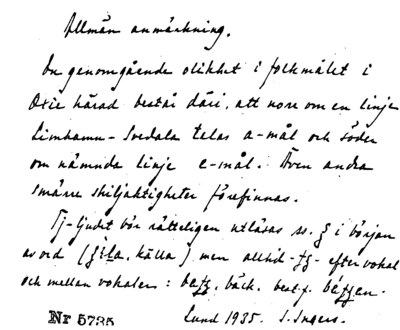 Allmän anmärkning.
En genomgående olikhet i folkmålet i
Oxie härad består däri, att norr om en linje
Limhamn - Svedala talas a-mål och söder
om nämnda linje e-mål. Även andra
smärre skiljaktigheter förefinnas.
Tj-ljudet bör rätteligen utläsas ss. ʒ i början
av ord (källa) men alltid - efter vokal
och mellan vokaler: bäck. best.f.
Nr 5735 Lund 1935. I. Ingers.